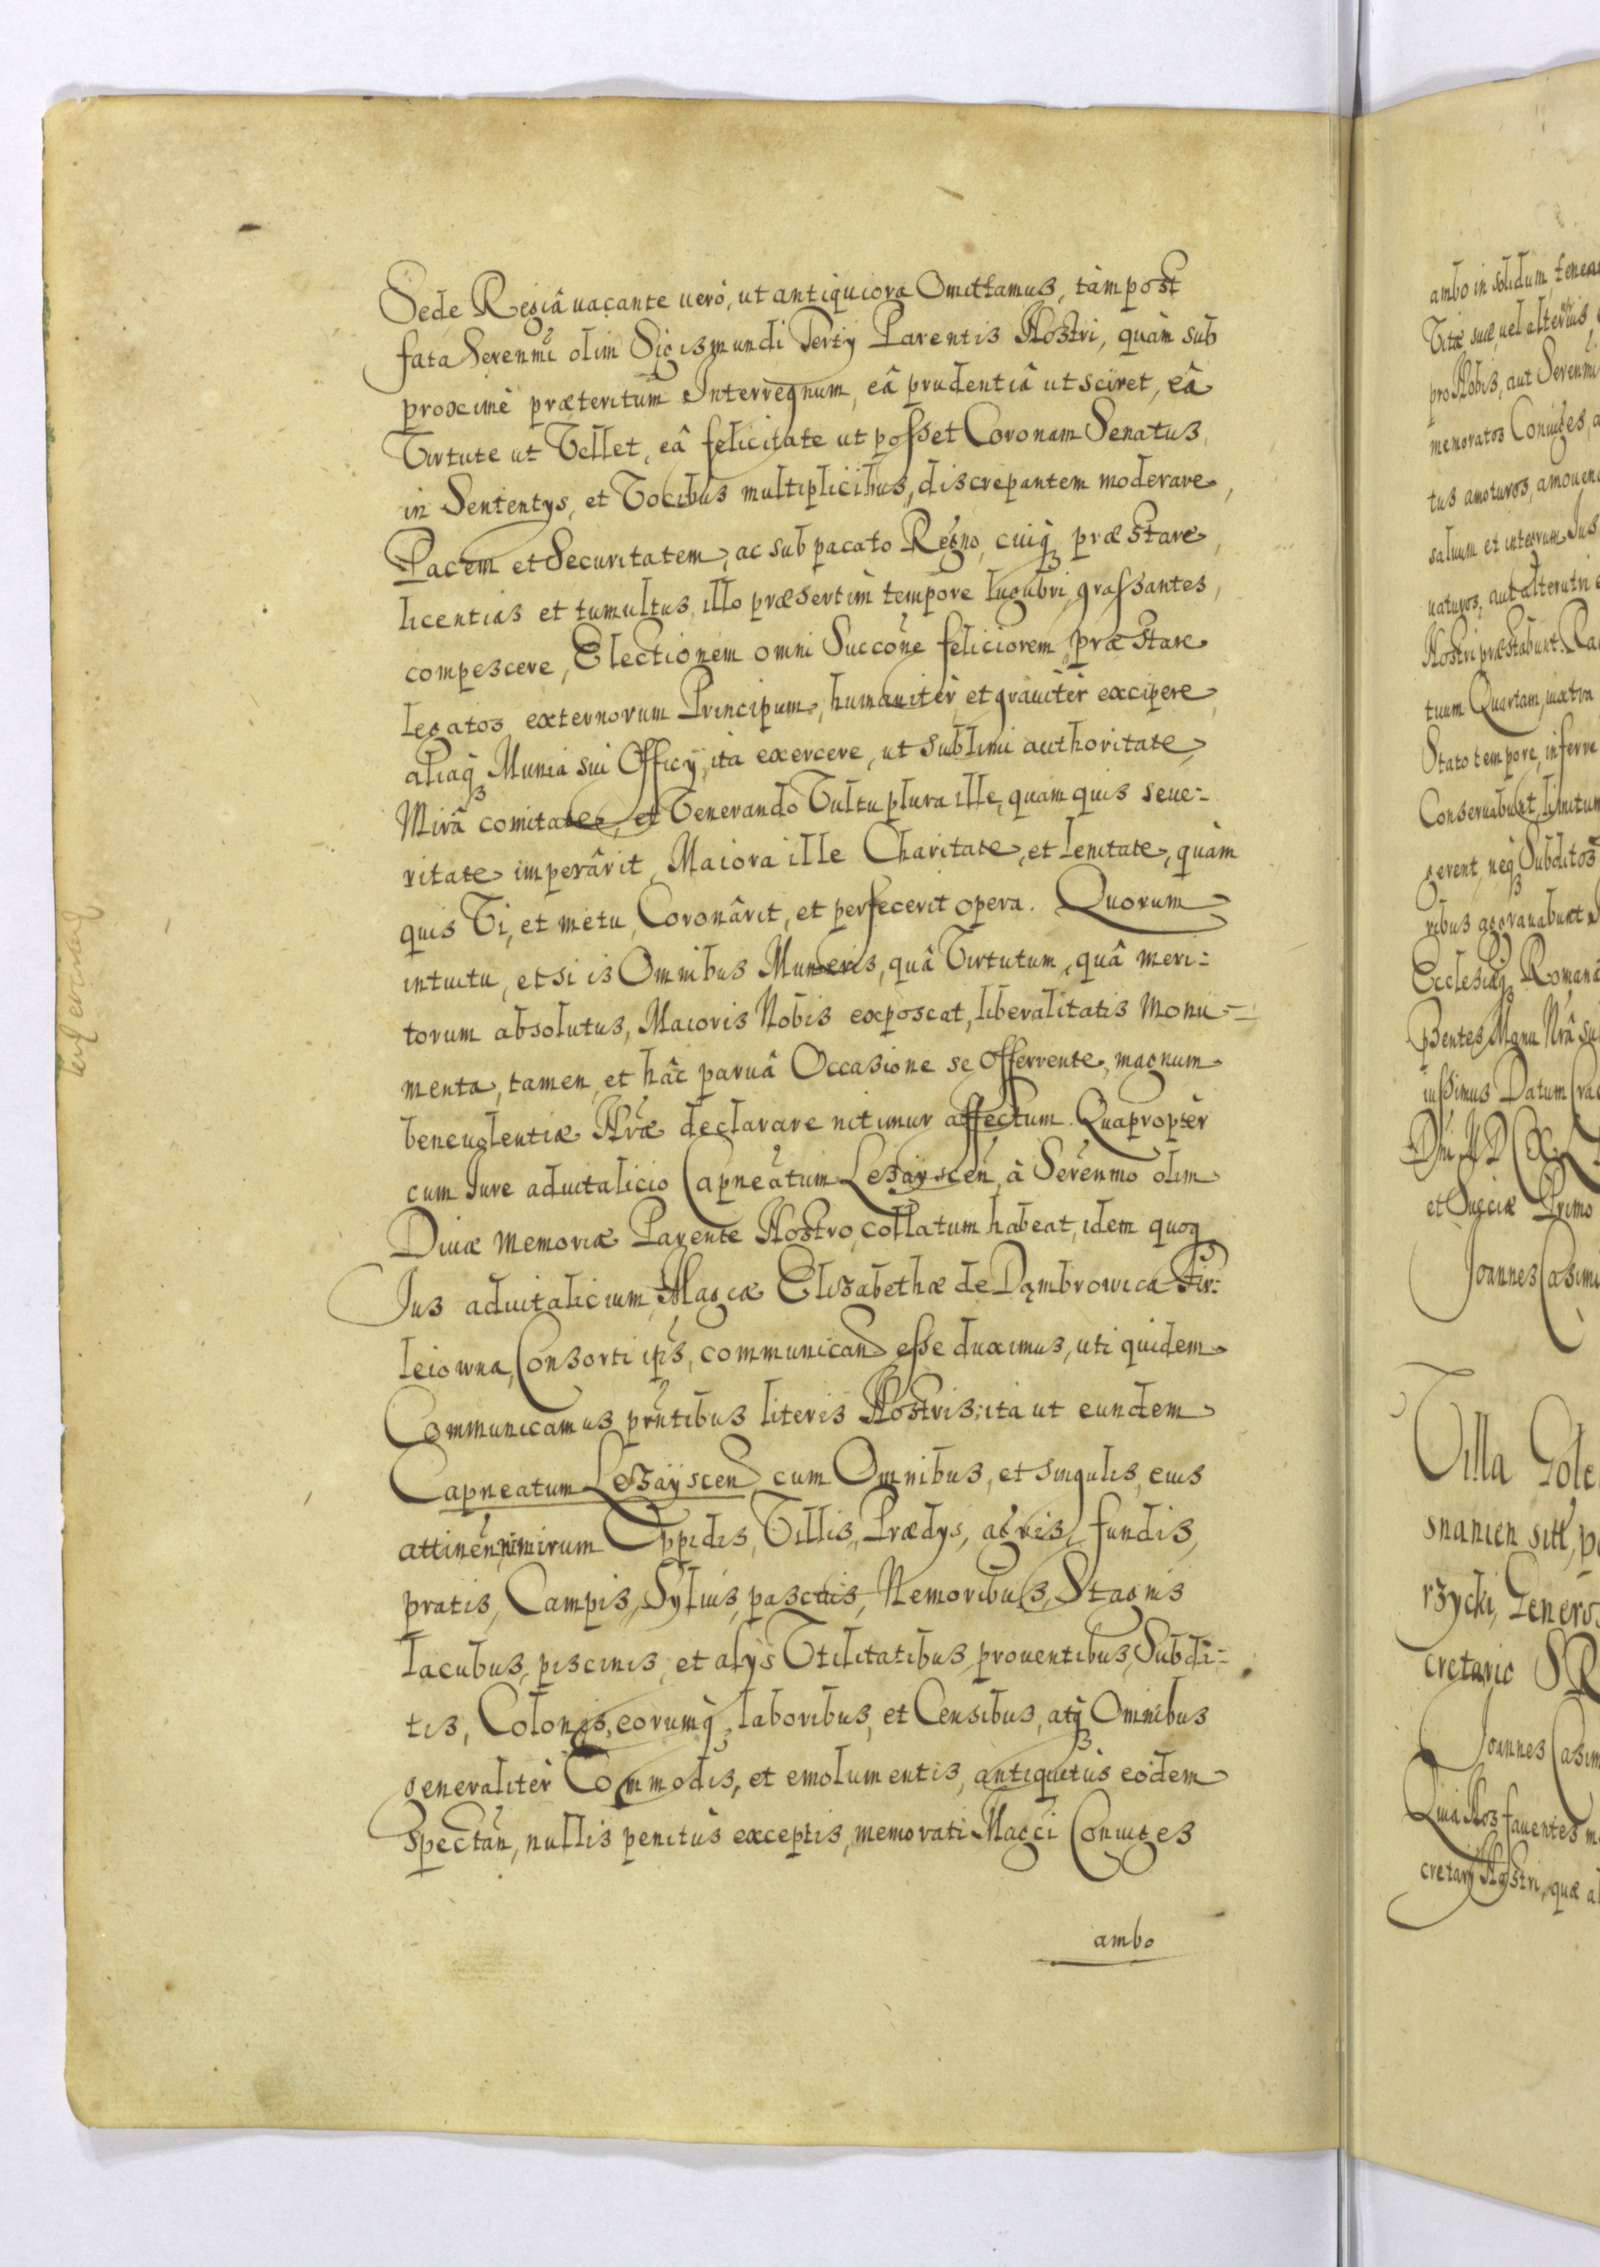 Sede Regiâ vacante uerò, ut antiquiora Omittamus, tàm post
fata Serenmi olim Sigismundi Tertÿ Parentis Nostri, quàm sub
proximè præteritum Interregnum, eâ prudentiâ ut sciret, eâ
Virtute ut Vellet, eâ felicitate ut posset Coronam Senatus
in Sententys, et Vocibus multiplicibus, discrepantem moderare,
Pacem et Securitatem, ac sub pacato Regno, cuiq præstare,
licentias et tumultus, illo præsertim tempore lugubri, grassantes,
compescere, Electionem omni Succone feliciorem præstare
legatos externorum Principum, humanitèr et grauitèr excipere,
aliaq Munia sui Officÿ, ita exercere, ut sublimi authoritate,
Mirâ comitate, et Venerando Vultu plura ille, quam quis seue-
ritate imperârit, Maiora ille Charitate, et lenitate, quàm
quis Vi, et metu, Coronârit, et perfecerit opera. Quorum
intuitu, etsi is Omnibus Muneris, quâ Virtutum, quâ meri-
torum absolutus, Maioris Nobis exposcat, liberalitatis Monu-
menta, tamen, et hâc paruâ Occasione se offerrente, magnum
beneuolentiæ Nræ declarare nitimur affectum. Quapropter
cum Iure aduitalicio Capneatum Leżayscen, à Serenmo olim
Diuæ Memoriæ Parente Nostro, collatum habeat, idem quoq
Ius aduitalicium, Magcæ Elisabethæ de Dąmbrowica Fir-
leiowna, Consorti ips, communicand esse duximus, uti quidem
Communicamus prntibus literis Nostris: ita ut eundem
Capneatum Leżayscen cum Omnibus, et singulis, eius
attinen, nimirum Oppidis, Villis, Prædys, agris, fundis,
pratis, Campis, Syluis, pascuis, Nemoribus, Stagnis
lacubus, piscinis, et alys Vtilitatibus, prouentibus, Subdi-
tis, Colonis, eorumq laboribus, et Censibus, atq Omnibus
generalitèr Commodis, et emolumentis, antiquitùs eodem
Spectan, nullis penitùs exceptis, memorati Magci Coniuges
ambo
ambo in solidum
Vitæ suæ, uel alterius,
pro Nobis, aut Serenmi
memoratos Coniuges,
tus amoturos,
saluum et integrum Ius
naturos, aut alterutri
Nostri præstabunt.
tuum Quartam, iuxta
Stato tempore, inferre
Conseruabunt,
gerent, neq Subditos
ribus aggrauabunt
Ecclesiæq Romanæ
Manu Nrâ
iussimus Datum
et Sueciæ Primo
Joannes Casimi
Villa
snanien sitt,
rzycki, Genero
cretario
Joannes Casim
Quia Nos fauentes
cretarÿ Nostri, quæ